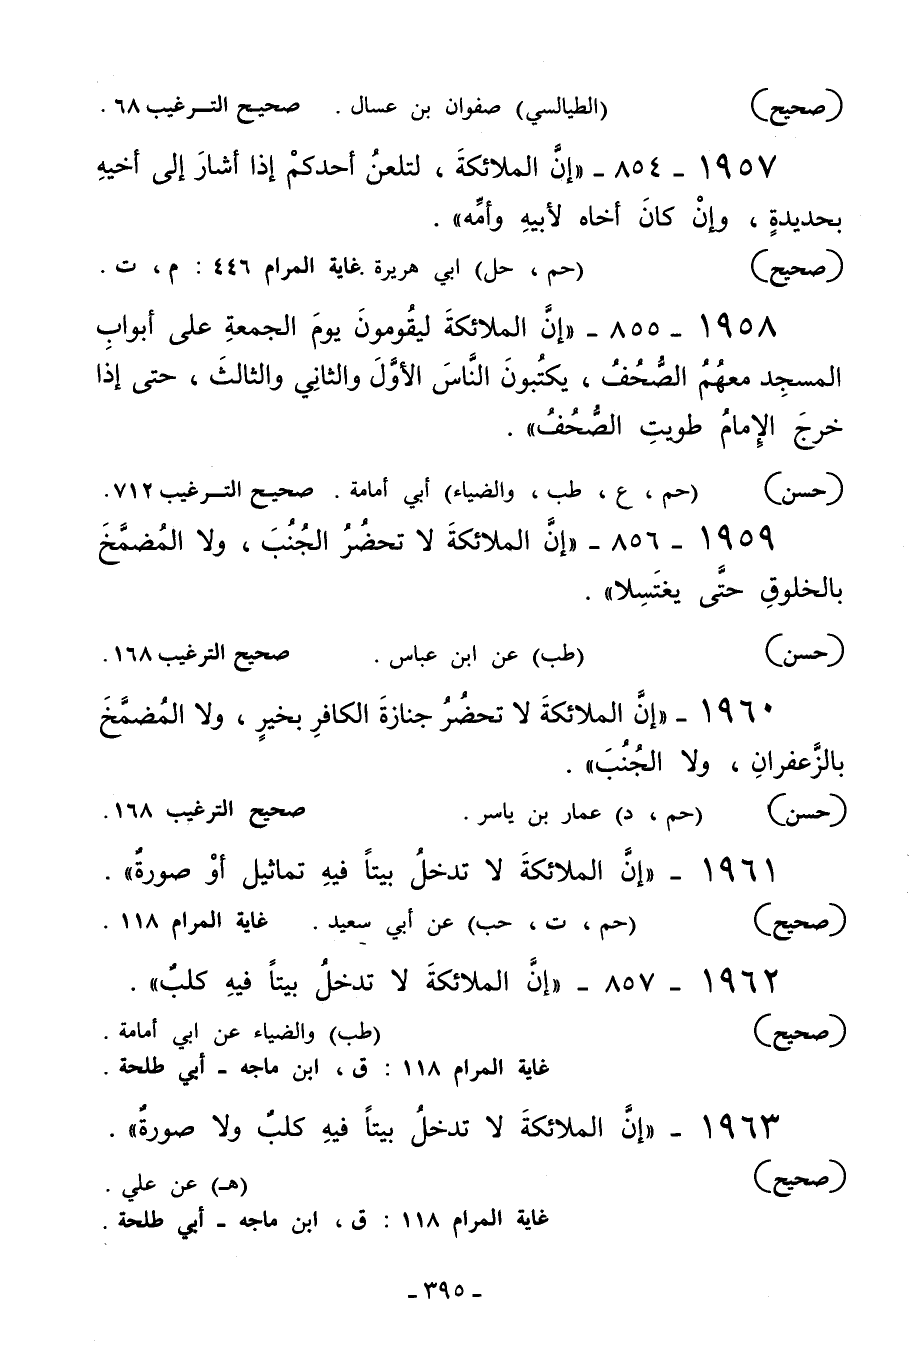 (صحيح) (الطيالسي) صفوان بن عسال . صحيح الترغيب ٦٨ .
١٩٥٧ ـ ٨٥٤ ـ «إنَّ الملائكةَ ، لتلعنُ أحدكمْ إذا أشارَ إلى أخيهِ
بحديدةٍ ، وإنْ كانَ أخاه لأبيهِ وأمِّه» .
(صحيح) (حم ، حل) ابي هريرة . غاية المرام ٤٤٦ : م ، ت .
١٩٥٨ ـ ٨٥٥ ـ «إنَّ الملائكةَ ليقُومونَ يومَ الجمعةِ على أبوابِ
المسجِد معهُمُ الصُّحُفُ ، يكتُبونَ النَّاسَ الأوَّلَ والثانِي والثالثَ ، حتى إذا
خرجَ الإِمامُ طويتِ الصُّحُفُ» .
(حسن) (حم ، ع ، طب ، والضياء) أبي أمامة . صحيح الترغيب ٧١٢ .
١٩٥٩ ـ ٨٥٦ ـ «إنَّ الملائكةَ لا تحضُرُ الجُنُبَ ، ولا المُضمَّخَ
بالخلوقِ حتَّى يغتَسِلا» .
(حسن) (طب) عن ابن عباس . صحيح الترغيب ١٦٨ .
١٩٦٠ ـ «إنَّ الملائكةَ لا تحضُرُ جنازةَ الكافرِ بخيرٍ ، ولا المُضمَّخَ
بالزَّعفرانِ ، ولا الجُنُبَ» .
(حسن) (حم ، د) عمار بن ياسر . صحيح الترغيب ١٦٨ .
١٩٦١ ـ «إنَّ الملائكةَ لا تدخلُ بيتاً فيهِ تماثيل أوْ صورةٌ» .
(صحيح) (حم ، ت ، حب) عن أبي سعيد . غاية المرام ١١٨ .
١٩٦٢ ـ ٨٥٧ ـ «إنَّ الملائكةَ لا تدخلُ بيتاً فيهِ كلبٌ» .
(صحيح) (طب) والضياء عن ابي أمامة .
غاية المرام ١١٨ : ق ، ابن ماجه ـ أبي طلحة .
١٩٦٣ ـ «إنَّ الملائكةَ لا تدخلُ بيتاً فيهِ كلبٌ ولا صورةٌ» .
(صحيح) (هـ) عن علي .
غاية المرام ١١٨ : ق ، ابن ماجه ـ أبي طلحة .
ـ ٣٩٥ ـ